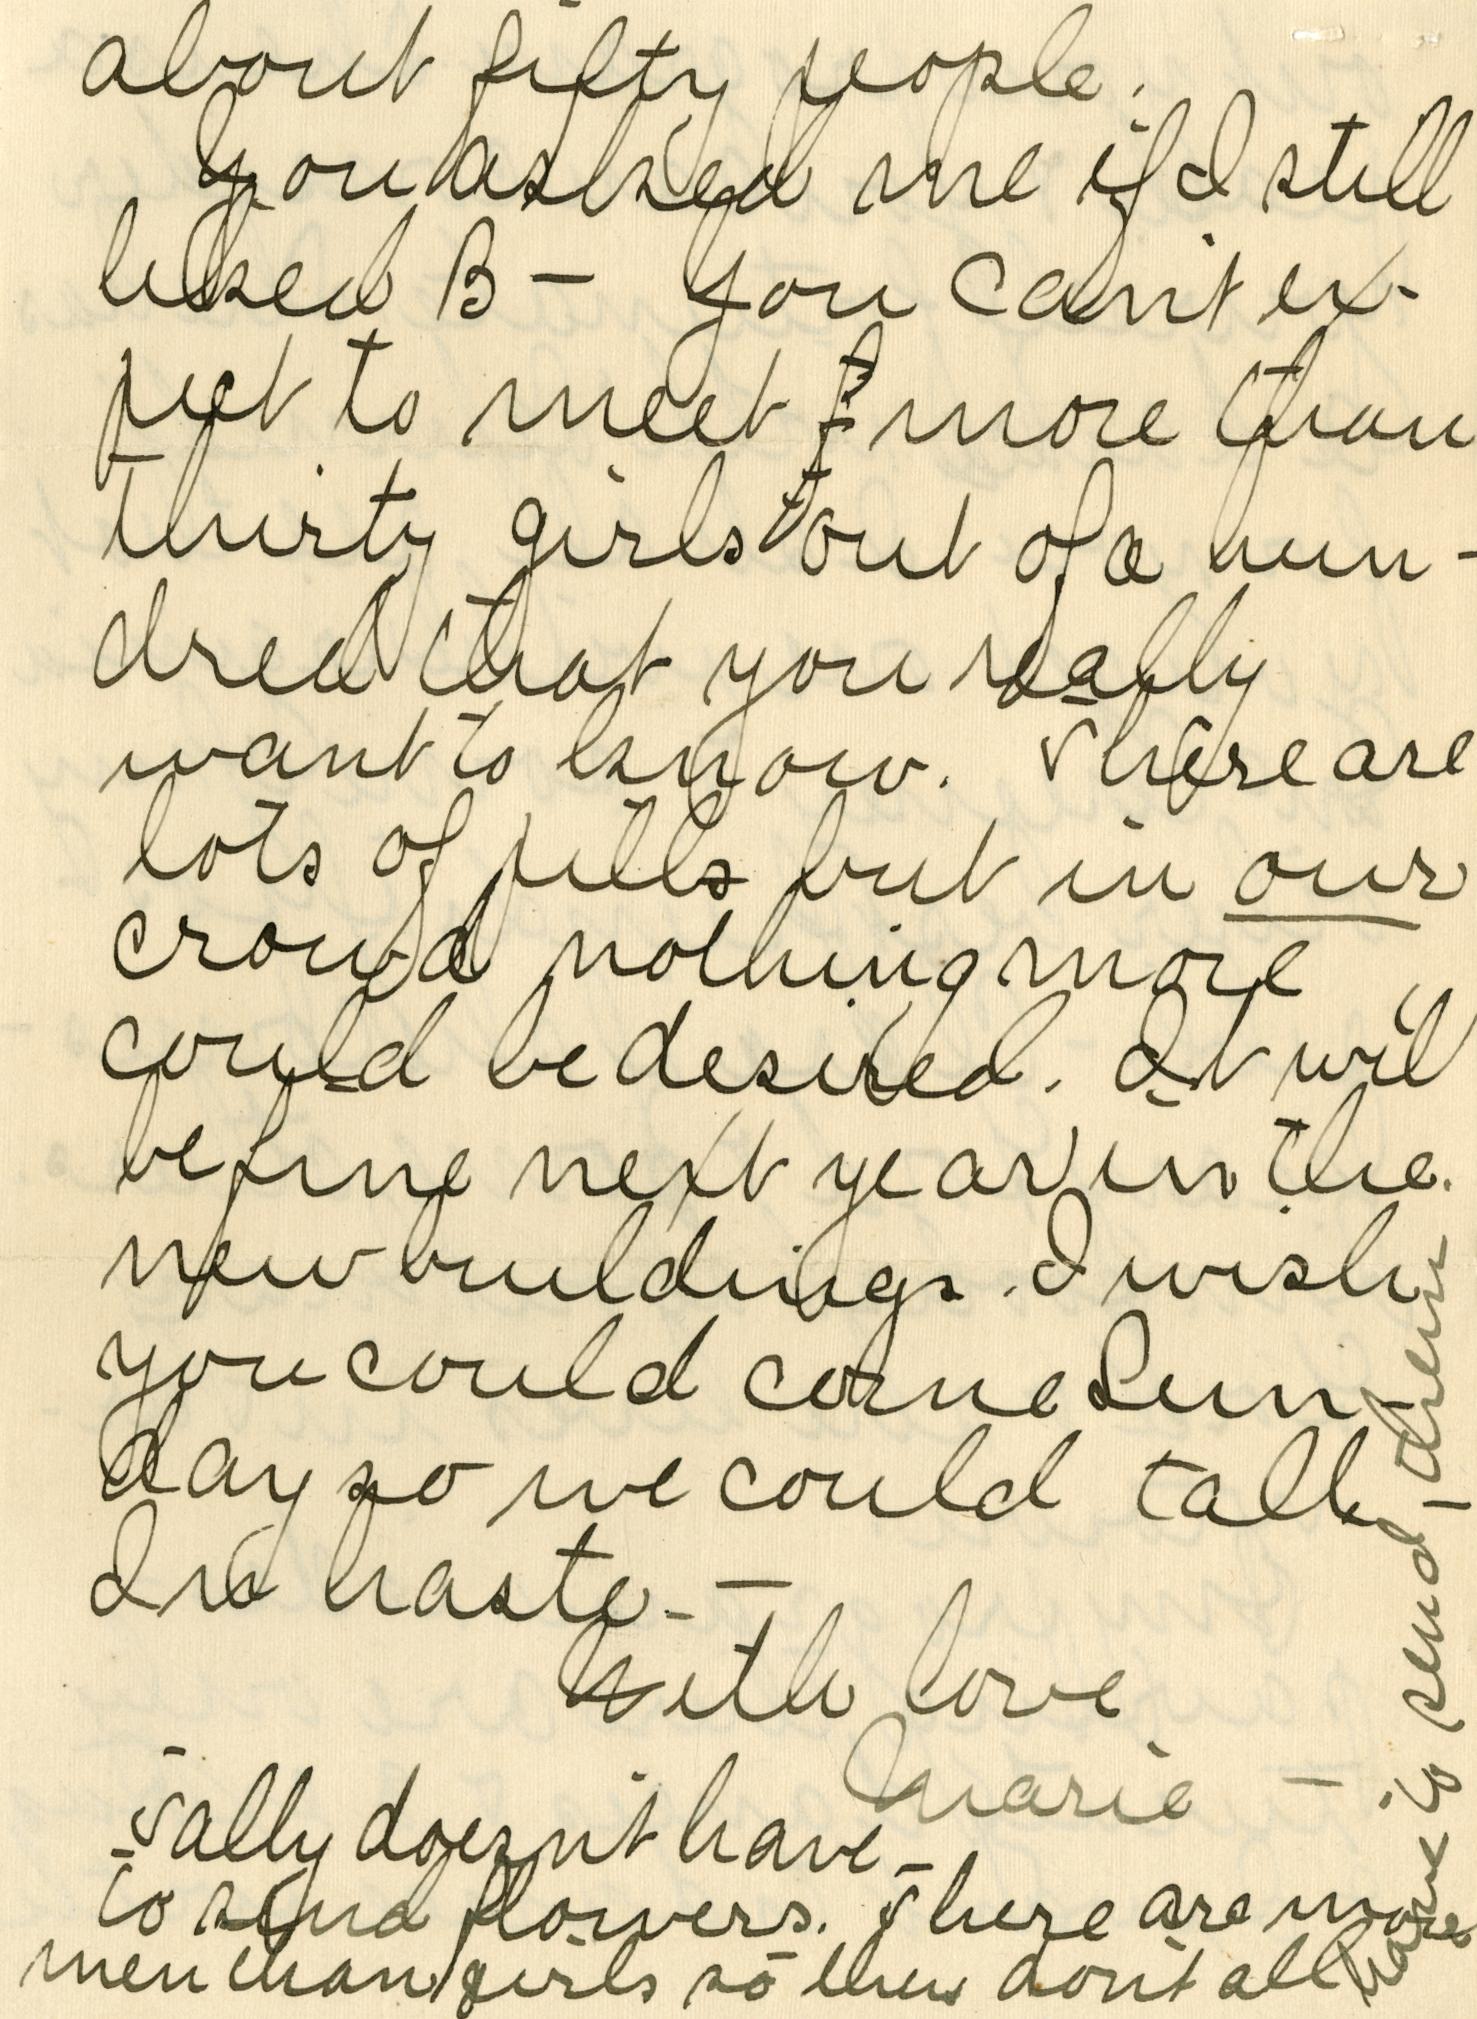 about fifty people.
You asked me if I still
liked B — You can't ex-
pect to meet more than
thirty girls out of a hun-
dred that you really
want to know. There are
lots of pills but in our
crowd nothing more
could be desired. It will
be fine next year in the
new buildings. I wish
you could come Sun-
day so we could talk
In haste —
With love
Marie —
Sally doesn't have
to send flowers. There are more
men than girls so they don't all
have to send them